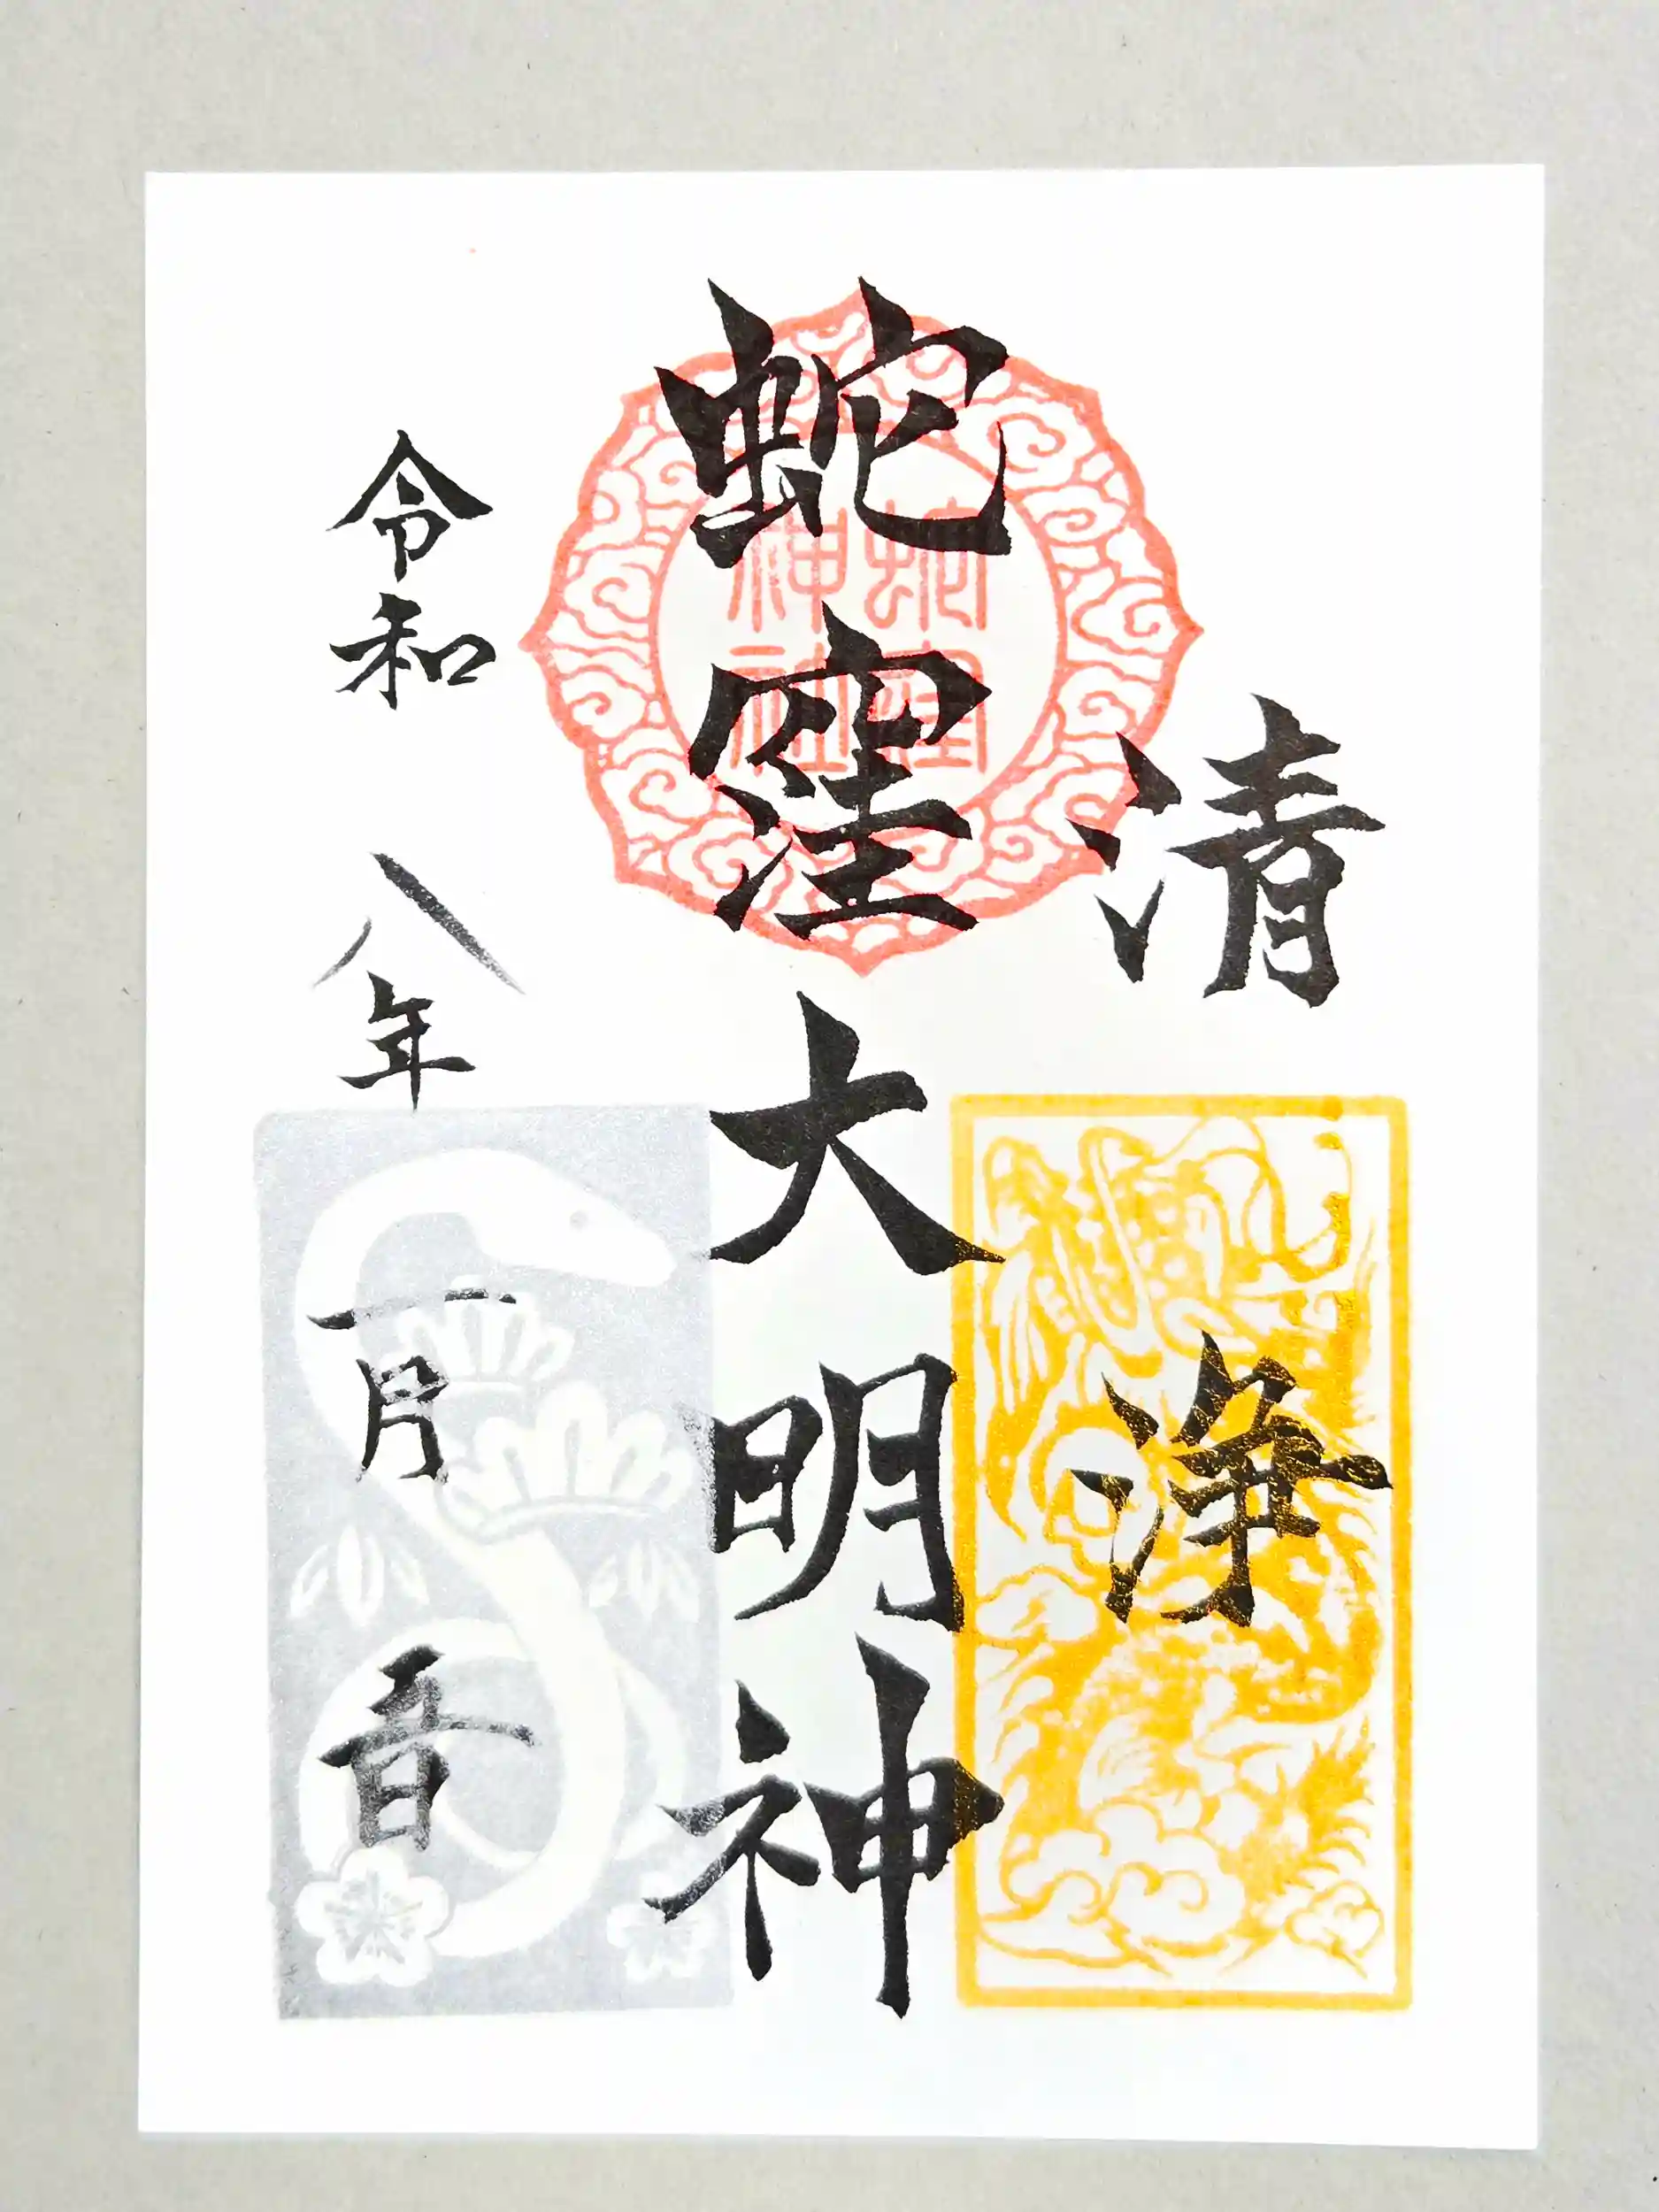 清浄
蛇窪大明神
蛇窪
神社
令和八年一月五日